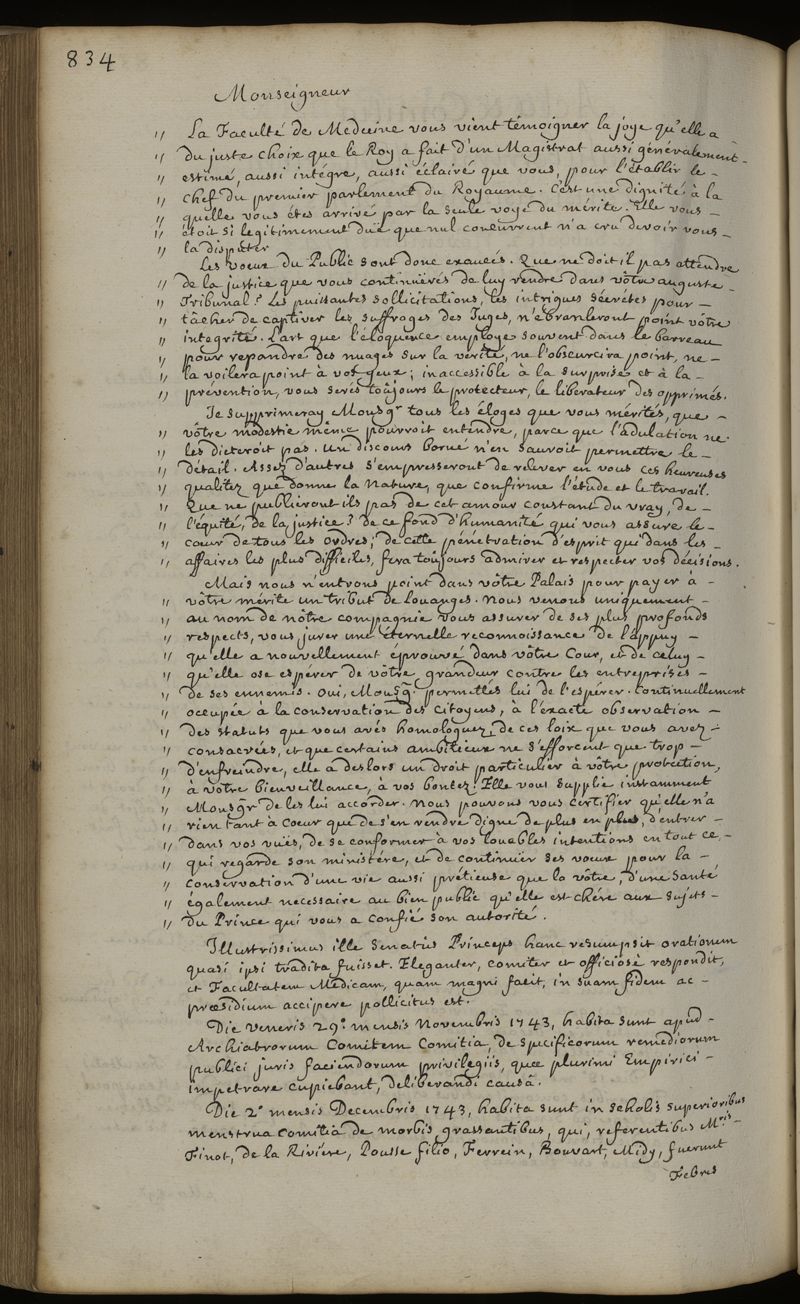 834
Monseigneur
" La Faculté de Medecine vous vient témoigner la joye qu'elle a
" du juste choix que le Roy a fait d'un Magistrat aussi généralement -
" estimé, aussi intégre, aussi éclairé que vous, pour l'établir le -
" chef du premier parlement du Royaume. C'est une dignité à la
" quelle vous étes arrivé par la seule voye du mérite. Elle vous -
" étoit si legitimement duë que nul concurrent n'a cru devoir vous -
" la disputer
Les voeux du Public sont donc exaucés. Que ne doit il pas attendre
" de la justice que vous continuerés de luy rendre dans vôtre auguste -
" Tribunal? Les puissantes sollicitations, les intrigues sécrétes pour -
" tâcher de captiver les suffrages des Juges, n'ébranleront point vôtre
" integrité. L'art que l'éloquence employe souvent dans le barreau
" pour repandre des nuages sur la verité, ne l'obscurcira point, ne -
" la voilera point à vos yeux; inaccessible à la surprise et à la -
" prévention, vous serés toûjours le protecteur, le libérateur des opprimés.
Je supprimeray Monsgr tous les éloges que vous mérités, que -
" vôtre modestie même pourroit entendre, parce que l'adulation ne
" les dicteroit pas. un discours borné n'en sauroit permettre le -
" détail. Assez d'autres s'empresseront de relever en vous ces heureuses
" qualitez que donne la nature, que confirme l'étude et le travail.
" Que ne publieront ils pas de cet amour constant du vray, de -
" l'équité, de la justice? de ce fond d'humanité qui vous assure le -
" coeur de tous les ordres; de cette pénétration d'esprit qui dans les -
" affaires les plus difficiles, fera toujours admirer et respecter vos décisions.
Mais nous n'entrons point dans vôtre Palais pour payer à -
" vôtre mérite un tribut de louanges. nous venons uniquement -
" au nom de nôtre compagnie vous assurer de ses plus profonds
" respects, vous jurer une éternelle reconnoissance de l'appuy -
" qu'elle a nouvellement éprouvé dans vôtre Cour, et de celuy -
" qu'elle ose espérer de vôtre grandeur contre les entreprises -
" de ses ennemis. oui, Monsgr. permettes lui de l'espérer. continuellement
" occupée à la conservation des citoyens, à l'éxacte observation -
" des statuts que vous avés homologuez, de ces loix que vous avez -
" consacrées, et que certains ambitieux ne s'efforcent que trop -
" d'enfreindre, elle a deslors un droit particulier à vôtre protection,
" à votre bienveillance, à vos bontez. Elle vous supplie instamment
" Monsgr de les lui accorder. nous pouvons vous certifier qu'elle n'a
" rien tant à coeur que de s'en rendre digne de plus en plus, d'entrer -
" dans vos vuës, de se conformer à vos louables intentions en tout ce -
" qui regarde son ministére, et de continuer ses voeux pour la -
" conservation d'une vie aussi prétieuse que la vôtre, d'une santé
" également necessaire au bien public qu'elle est chére aux sujets -
" du Prince qui vous a confié son autorité.
Illustrissimus ille Senatûs Princeps hanc resumpsit orationem
quasi ipsi tradita fuisset. Eleganter, comiter et officiosè respondit,
et Facultatem Medicam, quam magni facit, in suam fidem ac -
praesidium accipere pollicitus est.
Die veneris 29a. mensis novembris 1743, habita sunt apud -
Archiatrorum Comitem Comitia, de specificorum remediorum
publici juris faciendorum privilegiis, quae plurimi Empirici -
impetrare cupiebant, deliberandi causâ.
Die 2a mensis Decembris 1743, habita sunt in scholis superioribus
menstrua comitia de morbis grassantibus, qui, referentibus Mris -
Finot, de la Riviére, Pousse filio, Ferrein, Bouvart, Midy, fuerunt
Febres